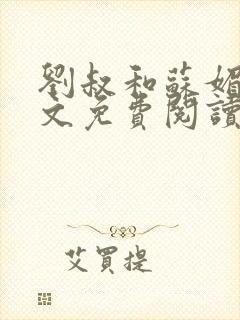 劉叔和蘇媚
文免費閱讀
艾買提